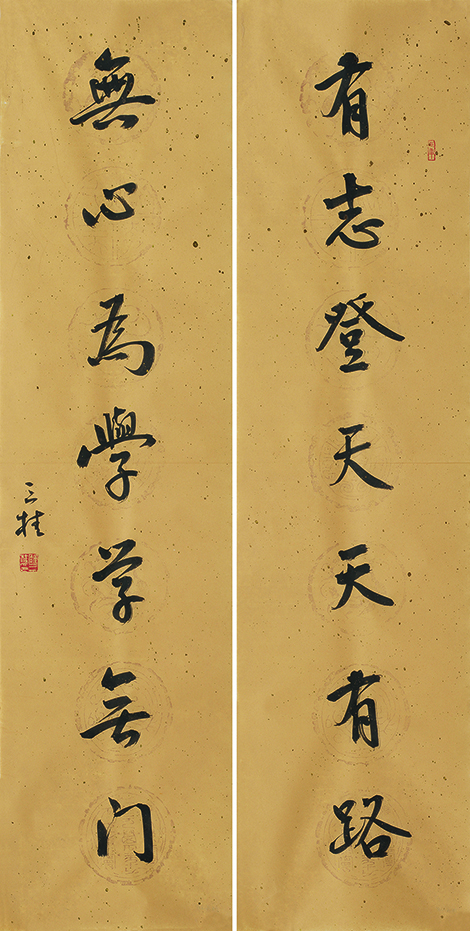 有志登天天有路
無心為學学無门
三桂